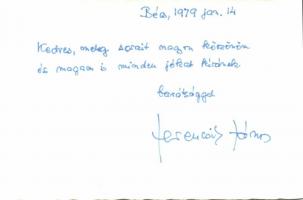 Bécs, 1979 jan. 14
Kedves, meleg sorait nagyon köszönöm
és magam is minden jókat kívánok
barátsággal
Ferencsik János